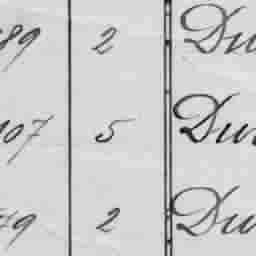 89 2 Du
107 5 Du
79 2 Du